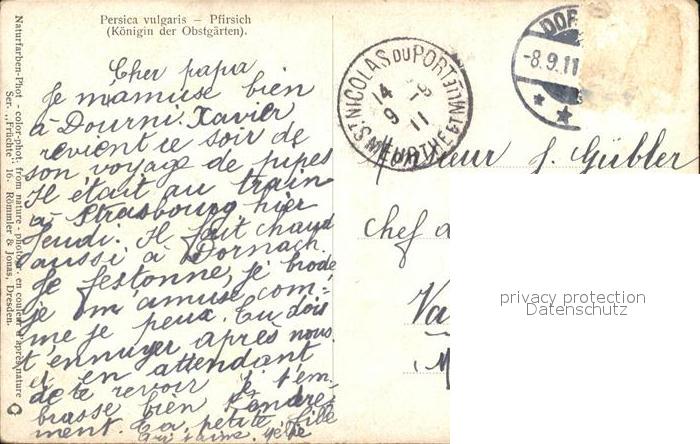 Persica vulgaris – Pfirsich
(Königin der Obstgärten).
Naturfarben-Phot. - color-phot. from nature - photogr. en couleur d'après nature
Ser. „Früchte" 16. Römmler & Jonas, Dresden.
Cher papa
Je m'amuse bien
à Dourni. Xavier
revient ce soir de
son voyage de pupes
Il était au train
à Strasbourg hier
Jeudi. Il fait chaud
aussi à Dornach.
Je festonne, je brode
je m'amuse com-
me je peux. Tu dois
t'ennuyer après nous.
et en attendant
de te revoir je t'em-
brasse bien tendre-
ment. Ta petite fille
qui t'aime
ST NICOLAS DU PORT
MEURTHE ET MLLE
14
8 - 9
11
DOR
-8.9.11
Monsieur J. Gübler
Chef d
Va
M
privacy protection
Datenschutz